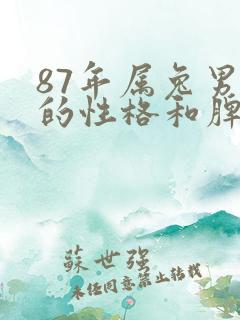 87年属兔男
的性格和脾
蘇世强
未经同意禁止转载